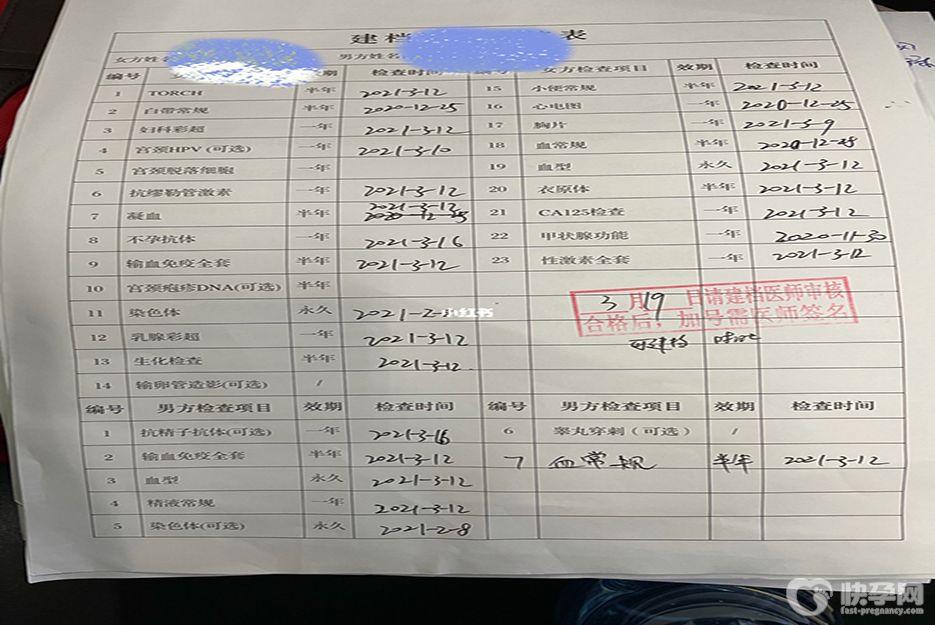 建档 表
女方姓名 男方姓名
编号 效期 检查时间 女方检查项目 效期 检查时间
1 TORCH 半年 2021-3-12 15 小便常规 半年 2021-3-12
2 白带常规 半年 2020-12-25 16 心电图 一年 2020-12-25
3 妇科彩超 一年 2021-3-12 17 胸片 一年 2021-3-9
4 宫颈HPV(可选) 一年 2021-3-10 18 血常规 半年 2020-12-25
5 宫颈脱落细胞 一年 19 血型 永久 2021-3-12
6 抗缪勒管激素 一年 2021-3-12 20 衣原体 半年 2021-3-12
7 凝血 半年 2021-3-12 2020-12-25 21 CA125检查 一年 2021-3-12
8 不孕抗体 一年 2021-3-16 22 甲状腺功能 一年 2020-11-30
9 输血免疫全套 半年 2021-3-12 23 性激素全套 一年 2021-3-12
10 宫颈疱疹DNA(可选) 半年
3月19日请建档医师审核
11 染色体 永久 2021-2-8 小红书
合格后,加号需医师签名
12 乳腺彩超 一年 2021-3-12 可建档
13 生化检查 半年 2021-3-12
14 输卵管造影(可选) /
编号 男方检查项目 效期 检查时间 编号 男方检查项目 效期 检查时间
1 抗精子抗体(可选) 一年 2021-3-16 6 睾丸穿刺(可选) /
2 输血免疫全套 半年 2021-3-12 7 血常规 半年 2021-3-12
3 血型 永久 2021-3-12
4 精液常规 一年 2021-3-12
5 染色体(可选) 永久 2021-2-8
快孕网
fast-pregnancy.com